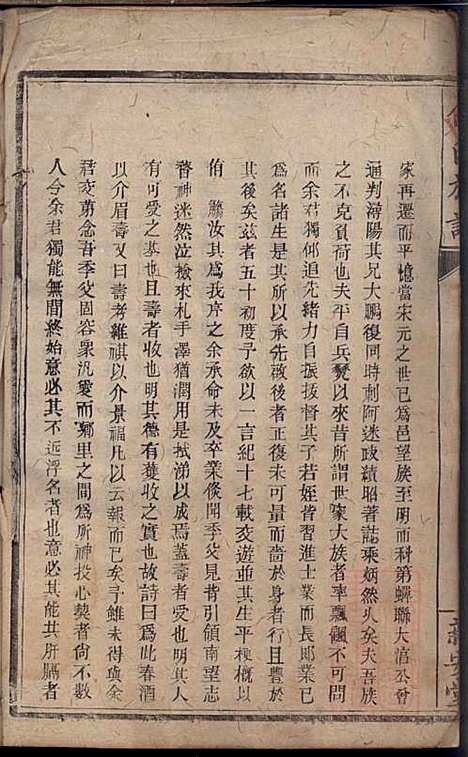 家再遷而平憶當宋元之世已為邑望族至明而科第蟬聯大信公會
通判潯陽其兄大鵬復同時刺阿迷政績昭著誌乘炳然久矣夫吾族
之不克負荷也夫平自兵燹以來昔所謂世家大族者率飄颻不可問
而余君獨能追先緒力自振拔督其子若姪皆習進士業而長郎業已
為名諸生是其所以承先啟後者正復未可量而嗇於身者行且豐於
其後矣茲者五十初度予欲以一言紀十七載交遊並其生平梗概以
侑觴汝其為我序之余承命未及卒業倏聞季父見背引領南望志
瞀神迷然泣檢來札手澤猶潤用是拭涕以成焉蓋壽者受也明其人
有可受之基也壽者收也明其德有獲收之實也故詩曰為此春酒
以介眉壽又曰壽考維祺以介景福凡以云報而已矣予雖未得與余
君交第念吾季父固容衆汎愛而鄉里之間為所神投心契者尚不數
人今余君獨能無間終始意必其不近浮名者也意必其能其所隔者